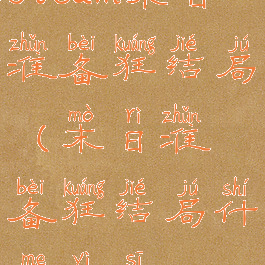 zhǔn bèi kuáng jié jú
准备狂结局
mò rì zhǔn
(末日准
bèi kuáng jié jú shí
备狂结局什
me yì sī